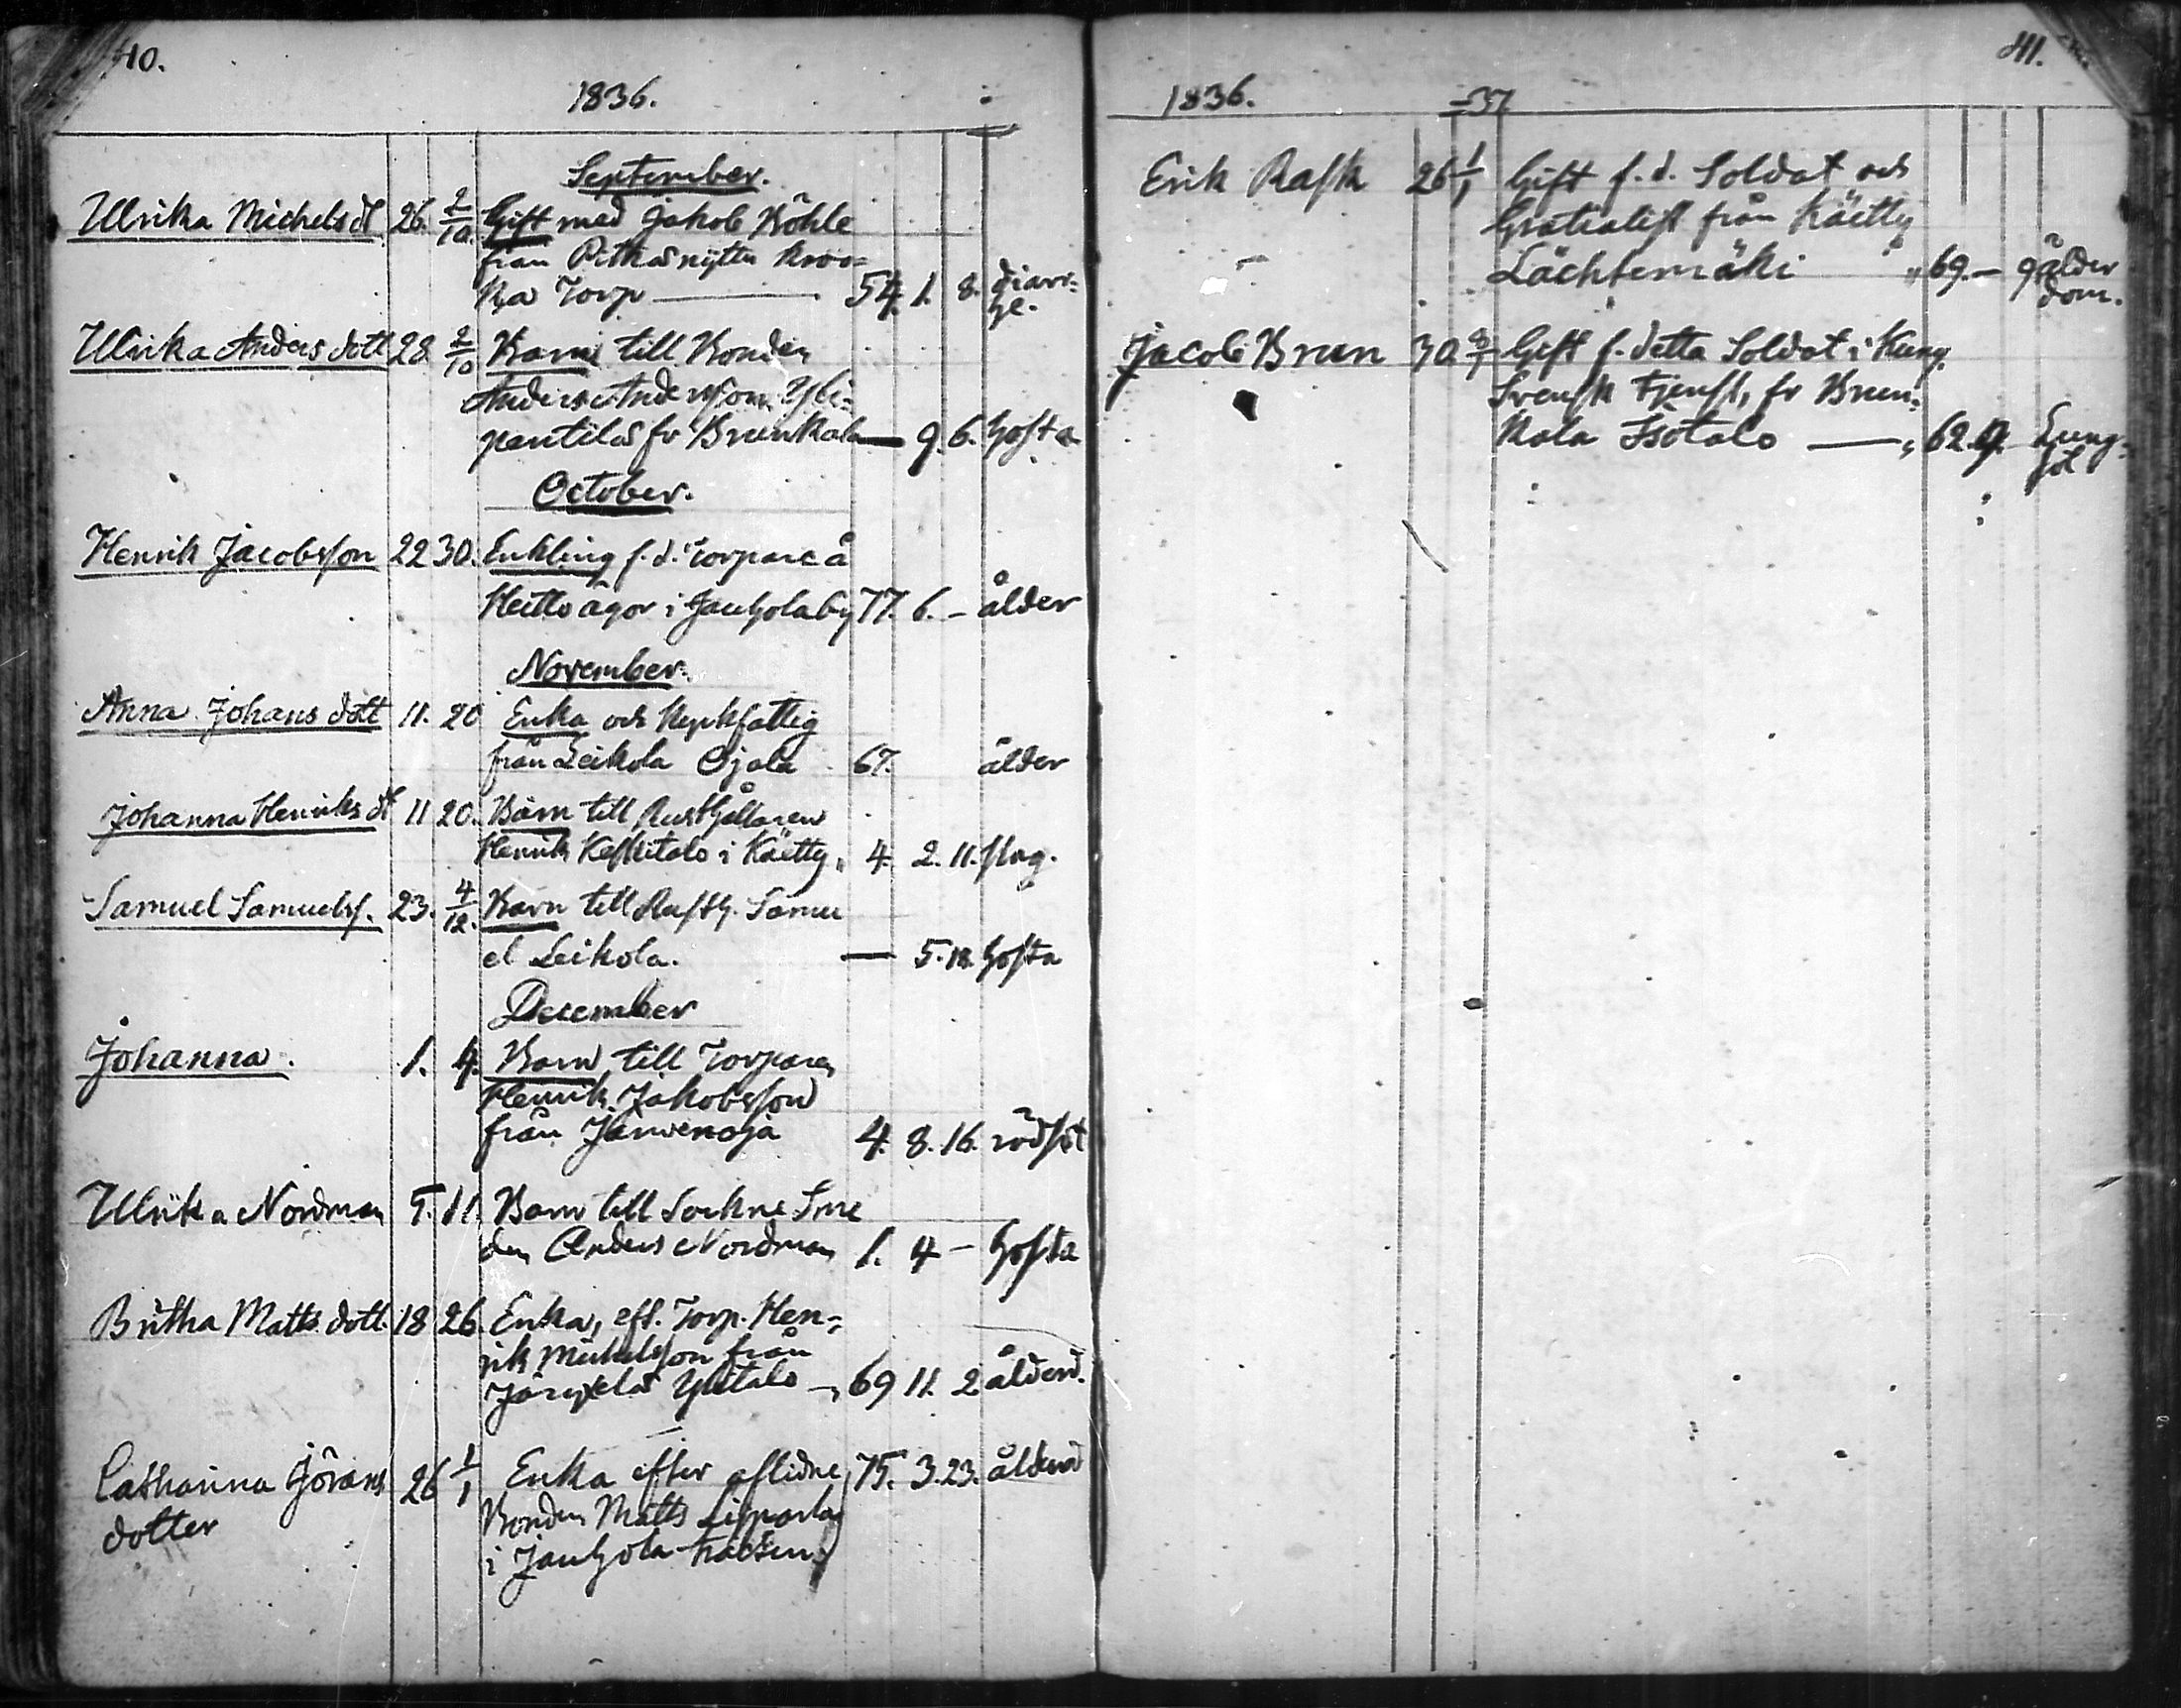 40.
1836.
September.
Ulrika Michels dr 26. 2/10. Gift med Jakob Böhle
från Pitkäsnyttu kroo=
ka Torp — 54. 1. 8. diarr=
he.
Ulrika Anders dott 28. 2/10 Barn till Bonden
Anders Andersson Yli=
pentilä fr Brunkala — 9. 6. hosta
October.
Henrik Jacobsson 22 30. Enkling f. d. Torpare å
Heitto ägor i Jauholaby 77. 6. - ålder
November.
Anna Johans dott 11. 20 Enka och Kyrkfattig
från Leikola Ojala 67. ålder
Johanna Henriks dr 11 20. Barn till Rusthållaren
Henrik Keskitalo i Käetty, 4. 2. 11. slag.
Samuel Samuelss. 23. 4/12. Barn till Rusth. Samu
el Leikola. — 5. 18. hosta
December
Johanna. 1. 4. Barn till Torparen
Henrik Jakobsson
från Järvenoja 4. 8. 16. rödsot
Ulrika Nordman 5. 11. Barn till Sockne Sme
den Anders Nordman 1. 4 - hosta
Britha Matts dott. 18 26. Enka, eft. Torp. Hen=
rik Michelsson från
Yhtalo 69 11. 2 ålderd.
Catharina Jörans 26 1/1 Enka efter aflidne 75. 3. 23. ålderd
dotter Bonden Matts
i Jauhola
41.
1836. =37
Erik Rask 26 1/1 Gift f. d. Soldat och
Gratialist från Käetty
Lächtemäki „ 69. — 9 ålder
dom.
Jacob Brun 30 Gift f. detta Soldat i Kung.
Svensk tjenst, fr Brun=
kala Isotalo — „ 62. 9. Lung=
sot